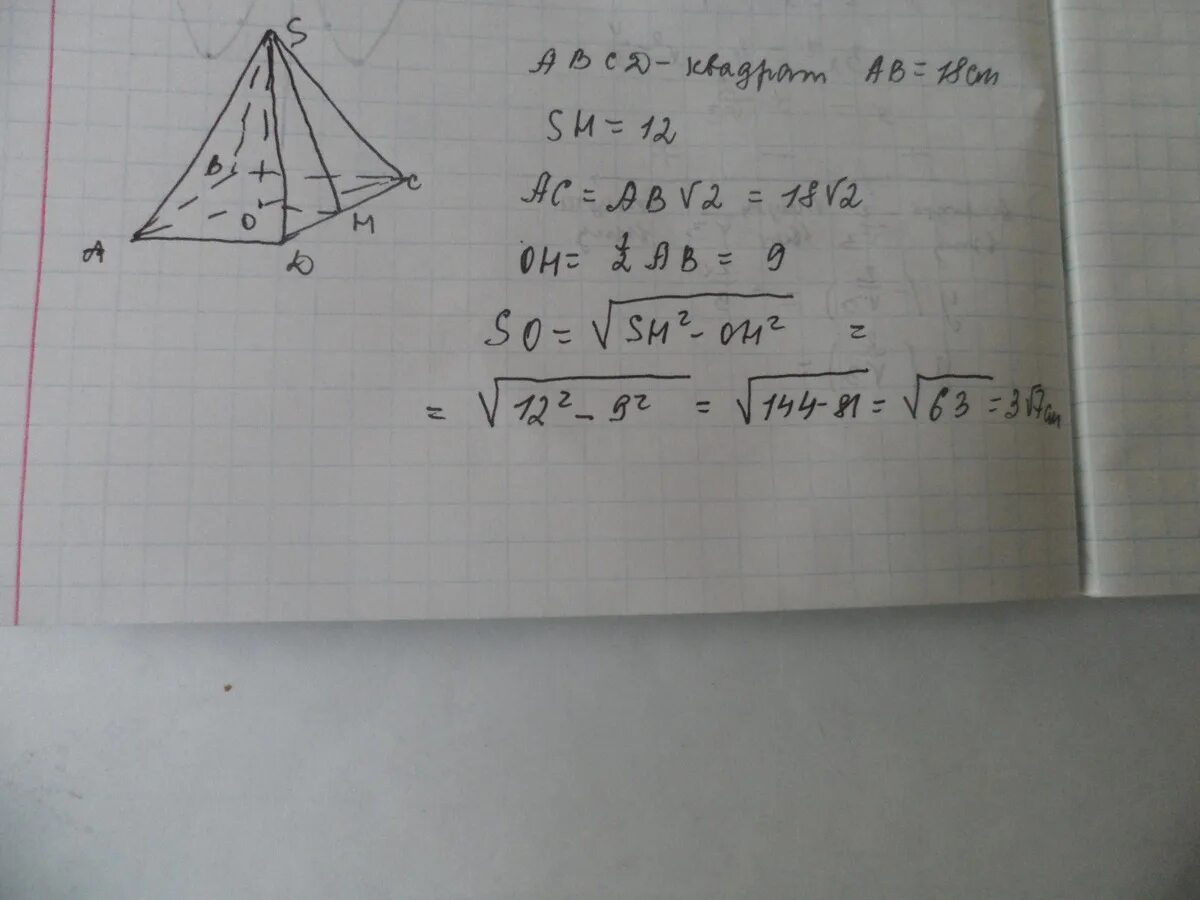 S
B
C
O
M
A
D
ABCD - квадрат AB = 18 см
SM = 12
AC = AB√2 = 18√2
OM = 1/2 AB = 9
SO = √SM² - OM² =
= √12² - 9² = √144-81 = √63 = 3√7 см